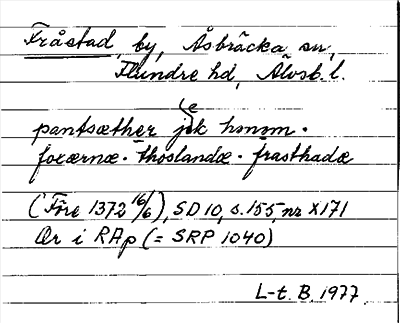 Fråstad, by, Åsbräcka sn,
Flundre hd, Älvsb. l.
e
pantsæther jak honom ·
foærnæ · thoslandæ · frasthadæ
(Före 1372 16/6), SD 10, s. 155, nr X171
Or i RAp (= SRP 1040)
L-t. B. 1977